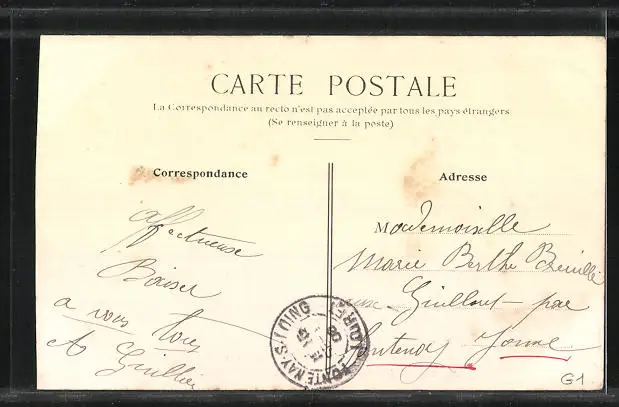 CARTE POSTALE
La Correspondance au recto n'est pas acceptée par tous les pays étrangers
(Se renseigner à la poste)
Correspondance
Affectueuse
Baiser
a vous tous
A Guillier
Adresse
Mademoiselle
Marie Berthe
par
Fontenoy Yonne
FONTENAY-S-
G1